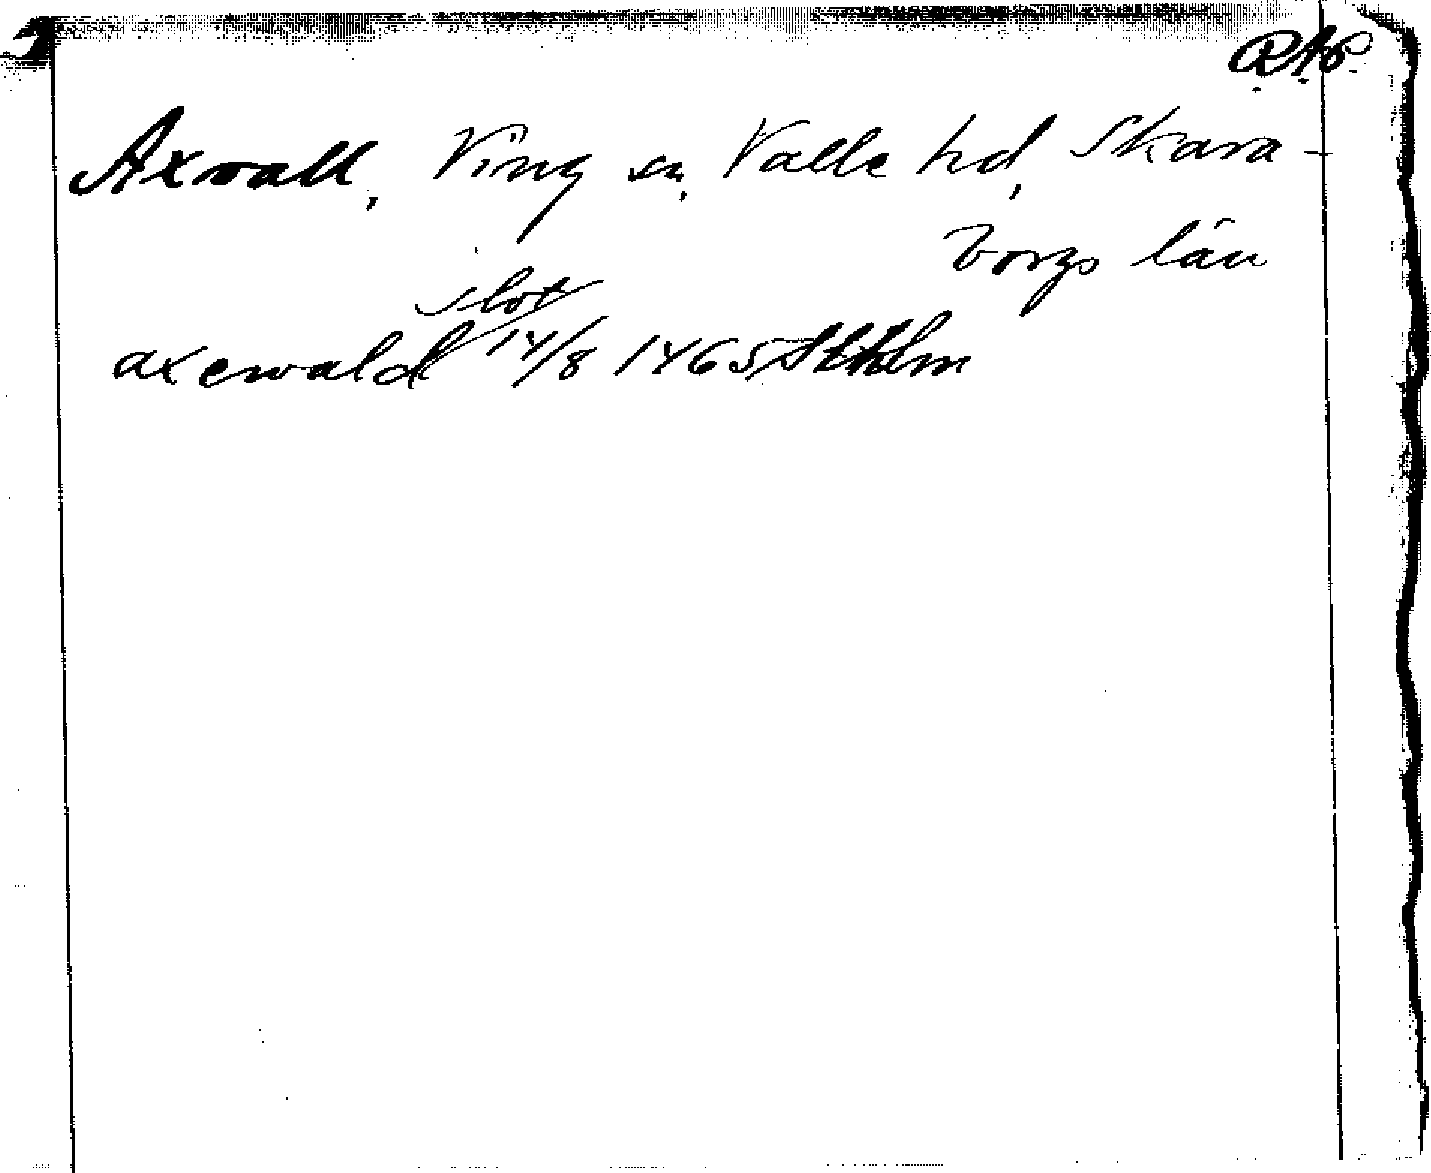 RAP
Axvall, Ving sn, Valle hd, Skara-
borgs län
slot
axewald 14/8 1465 Sthlm